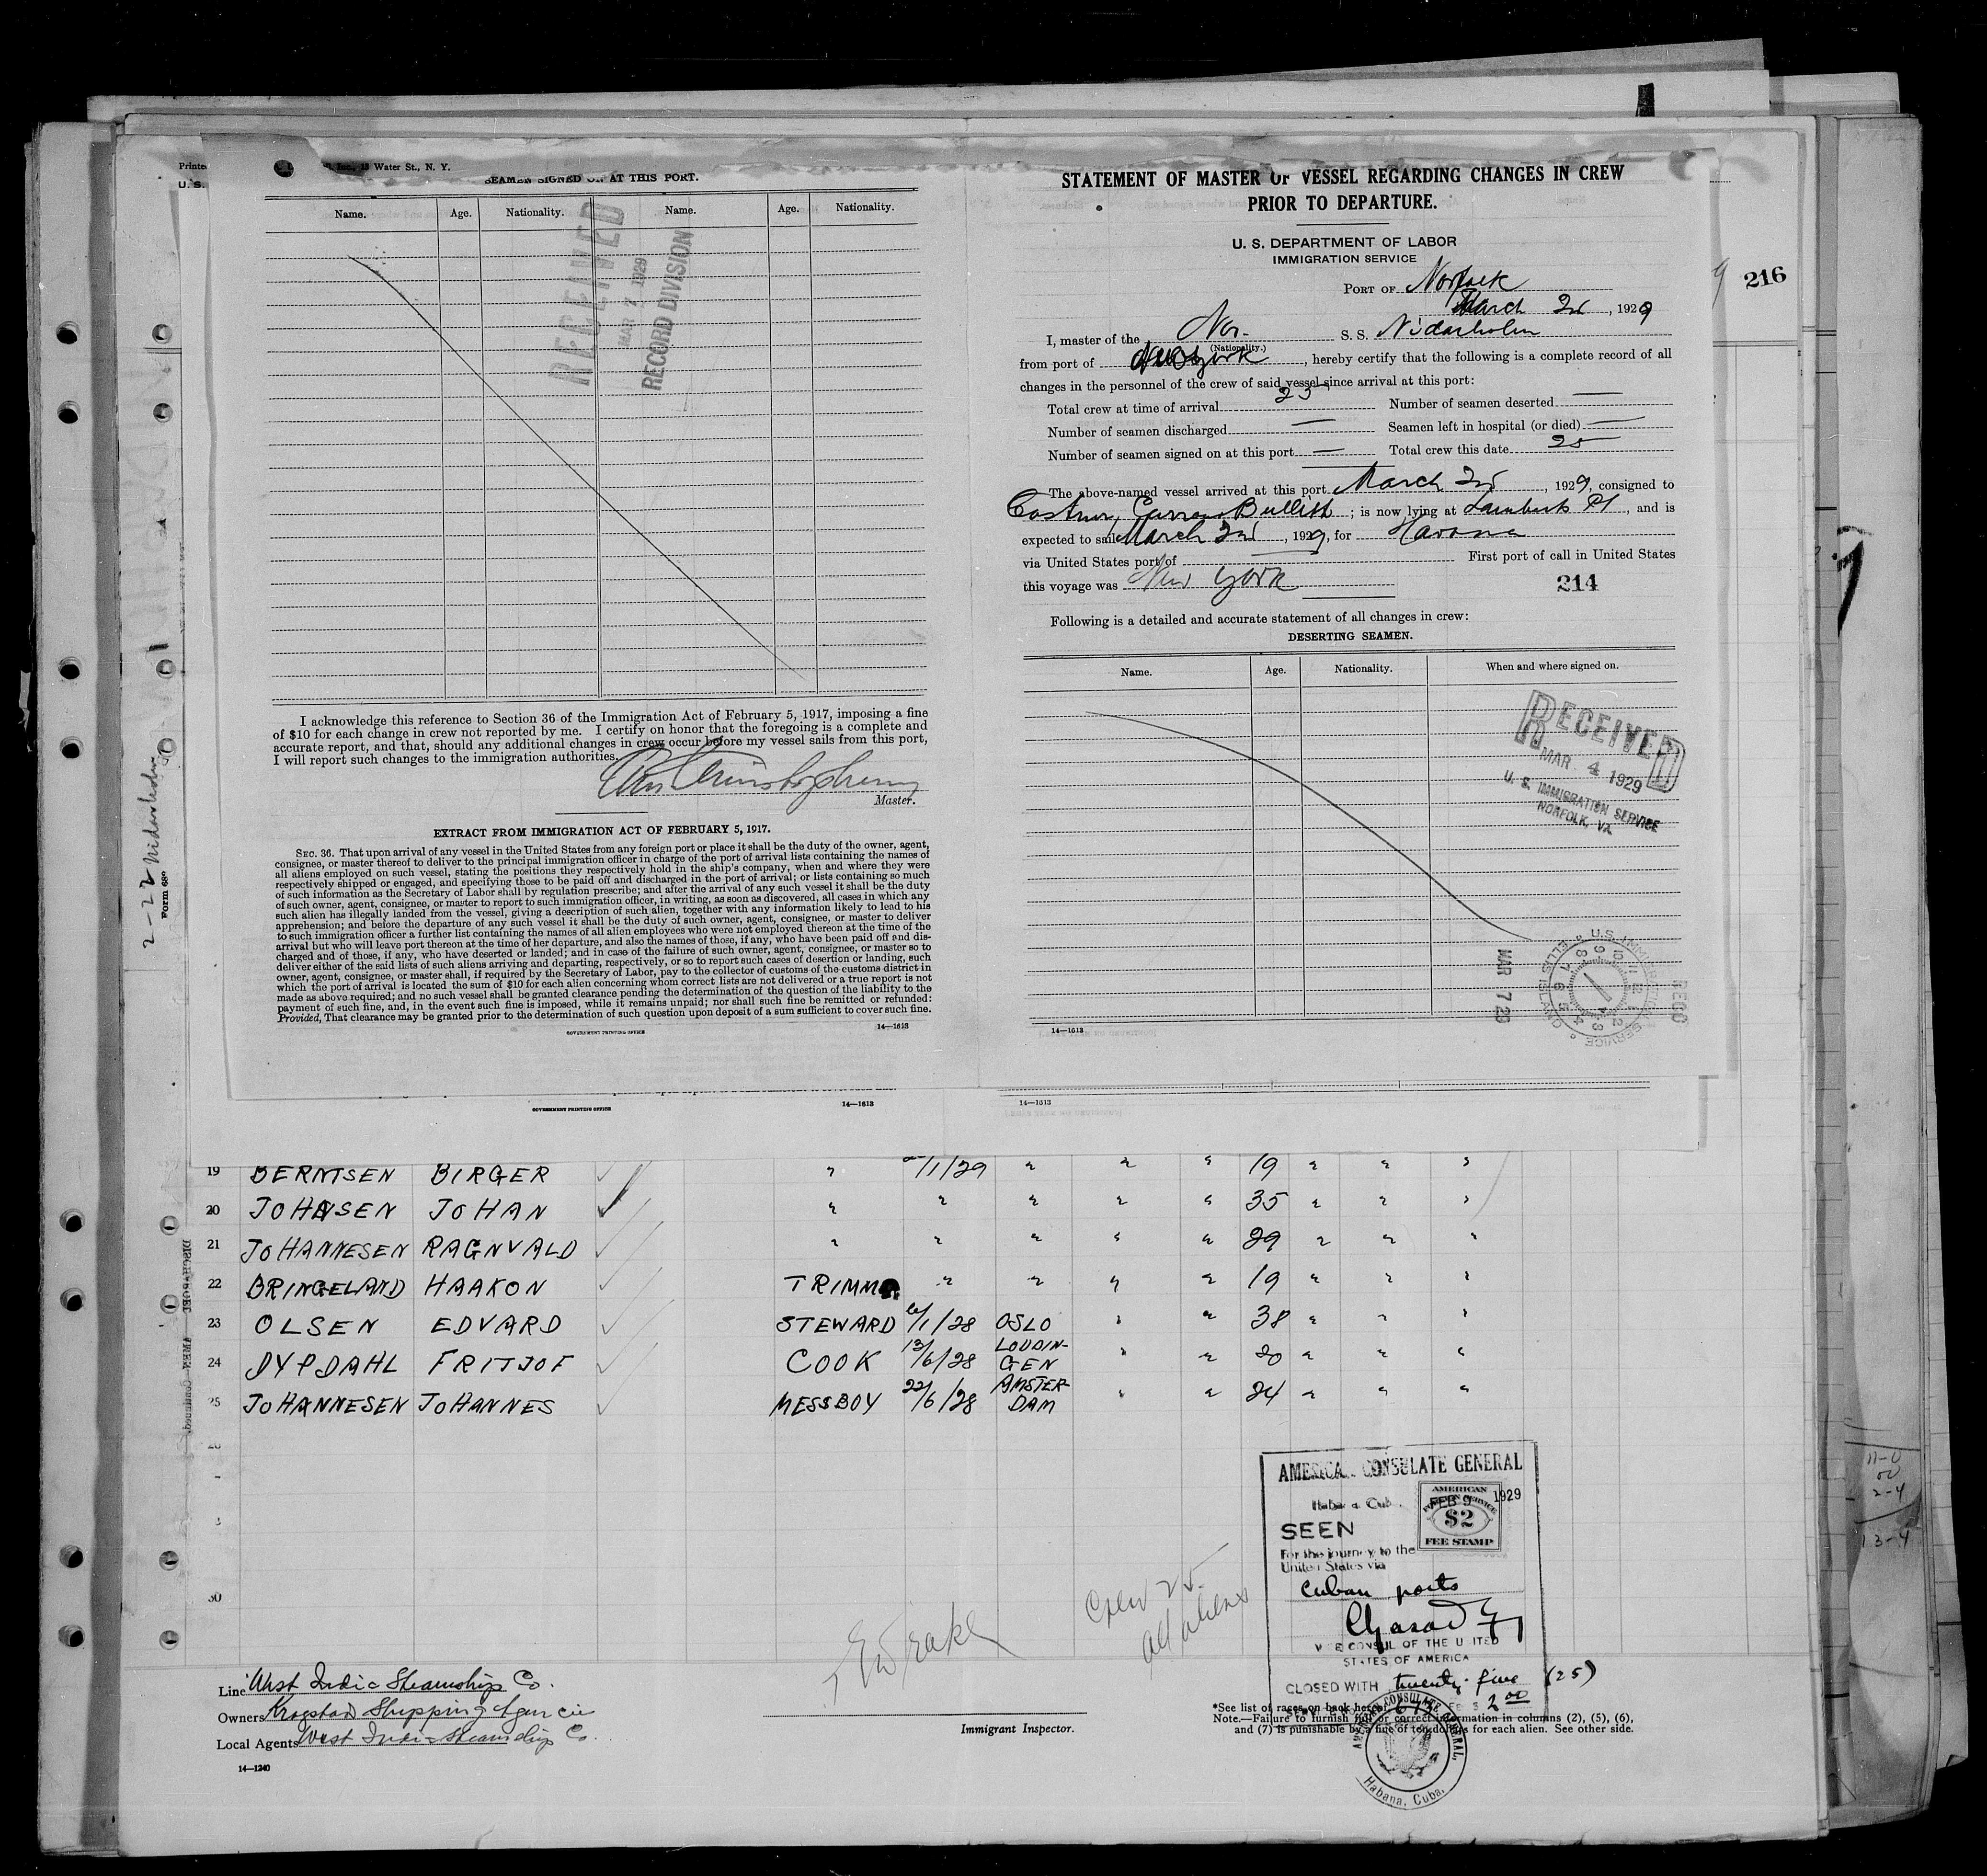 Inc., 18 Water St., N. Y.
U. S.
SEAMEN SIGNED ON AT THIS PORT.
Name. Age. Nationality. Name. Age. Nationality.
RECEIVED
MAR 7 1929
RECORD DIVISION
I acknowledge this reference to Section 36 of the Immigration Act of February 5, 1917, imposing a fine
of $10 for each change in crew not reported by me. I certify on honor that the foregoing is a complete and
accurate report, and that, should any additional changes in crew occur before my vessel sails from this port,
I will report such changes to the immigration authorities.
Master.
EXTRACT FROM IMMIGRATION ACT OF FEBRUARY 5, 1917.
SEC. 36. That upon arrival of any vessel in the United States from any foreign port or place it shall be the duty of the owner, agent,
consignee, or master thereof to deliver to the principal immigration officer in charge of the port of arrival lists containing the names of
all aliens employed on such vessel, stating the positions they respectively hold in the ship's company, when and where they were
respectively shipped or engaged, and specifying those to be paid off and discharged in the port of arrival; or lists containing so much
of such information as the Secretary of Labor shall by regulation prescribe; and after the arrival of any such vessel it shall be the duty
of such owner, agent, consignee, or master to report to such immigration officer, in writing, as soon as discovered, all cases in which any
such alien has illegally landed from the vessel, giving a description of such alien, together with any information likely to lead to his
apprehension; and before the departure of any such vessel it shall be the duty of such owner, agent, consignee, or master to deliver
to such immigration officer a further list containing the names of all alien employees who were not employed thereon at the time of the
arrival but who will leave port thereon at the time of her departure, and also the names of those, if any, who have been paid off and dis-
charged and of those, if any, who have deserted or landed; and in case of the failure of such owner, agent, consignee, or master so to
deliver either of the said lists of such aliens arriving and departing, respectively, or so to report such cases of desertion or landing, such
owner, agent, consignee, or master shall, if required by the Secretary of Labor, pay to the collector of customs of the customs district in
which the port of arrival is located the sum of $10 for each alien concerning whom correct lists are not delivered or a true report is not
made as above required; and no such vessel shall be granted clearance pending the determination of the question of the liability to the
payment of such fine, and, in the event such fine is imposed, while it remains unpaid; nor shall such fine be remitted or refunded:
Provided, That clearance may be granted prior to the determination of such question upon deposit of a sum sufficient to cover such fine.
GOVERNMENT PRINTING OFFICE 14—1613
STATEMENT OF MASTER OF VESSEL REGARDING CHANGES IN CREW
PRIOR TO DEPARTURE.
U. S. DEPARTMENT OF LABOR
IMMIGRATION SERVICE
PORT OF Norfolk
March 2d, 1929
I, master of the Nor. S. S. Nidarholm
(Nationality.)
from port of New York, hereby certify that the following is a complete record of all
changes in the personnel of the crew of said vessel since arrival at this port:
Total crew at time of arrival 25 Number of seamen deserted —
Number of seamen discharged — Seamen left in hospital (or died) —
Number of seamen signed on at this port — Total crew this date 25
The above-named vessel arrived at this port March 2d, 1929, consigned to
Castner, Curran Bullitt; is now lying at Lamberts Pt, and is
expected to sail March 2d, 1929, for Havana
via United States port of — First port of call in United States
this voyage was New York
214
Following is a detailed and accurate statement of all changes in crew:
DESERTING SEAMEN.
Name. Age. Nationality. When and where signed on.
RECEIVED
MAR 4 1929
U. S. IMMIGRATION SERVICE
NORFOLK, VA
MAR 7 29
U.S. IMMIGRATION SERVICE ELLIS ISLAND
RECD
14—1613
216
2-22 Nidarholm
GOVERNMENT PRINTING OFFICE 14—1613 14—1613
19 BERNTSEN BIRGER " /1/29 " " " 19 " " "
20 JOHNSEN JOHAN " " " " " 35 " " "
21 JOHANNESEN RAGNVALD " " " " " 29 " " "
22 BRINGELAND HAAKON TRIMM " " " " 19 " " "
23 OLSEN EDVARD STEWARD 6/1/28 OSLO " " 38 " " "
24 DYPDAHL FRITJOF COOK 13/6/28 LODDINGEN " " 20 " " "
25 JOHANNESEN JOHANNES MESSBOY 22/6/28 AMSTERDAM " " 24 " " "
30
Crew 25
all aliens
AMERICAN CONSULATE GENERAL
Habana, Cuba FEB 9 1929
AMERICAN FOREIGN SERVICE $2 FEE STAMP
SEEN
For the journey to the
United States via
Cuban ports
VICE CONSUL OF THE UNITED
STATES OF AMERICA
CLOSED WITH twenty-five (25)
2.00
AMERICAN CONSULATE GENERAL, Habana, Cuba.
Line West India Steamship Co.
Owners Krogstad Shipping Agencie
Local Agents West India Steamship Co.
14—1240
Immigrant Inspector.
*See list of races on back hereof.
Note.—Failure to furnish full or correct information in columns (2), (5), (6),
and (7) is punishable by a fine of ten dollars for each alien. See other side.
11-0
00
2-4
13-4